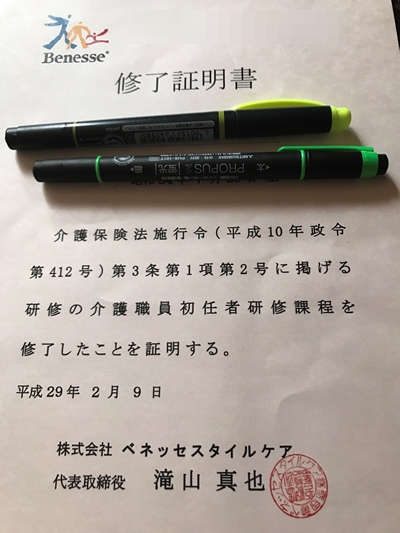 Benesse
修了証明書
PROPUS
蛍光
太
介護保険法施行令(平成10年政令
第412号)第3条第1項第2号に掲げる
研修の介護職員初任者研修課程を
修了したことを証明する。
平成29年 2月 9日
株式会社 ベネッセスタイルケア
代表取締役 滝山 真也